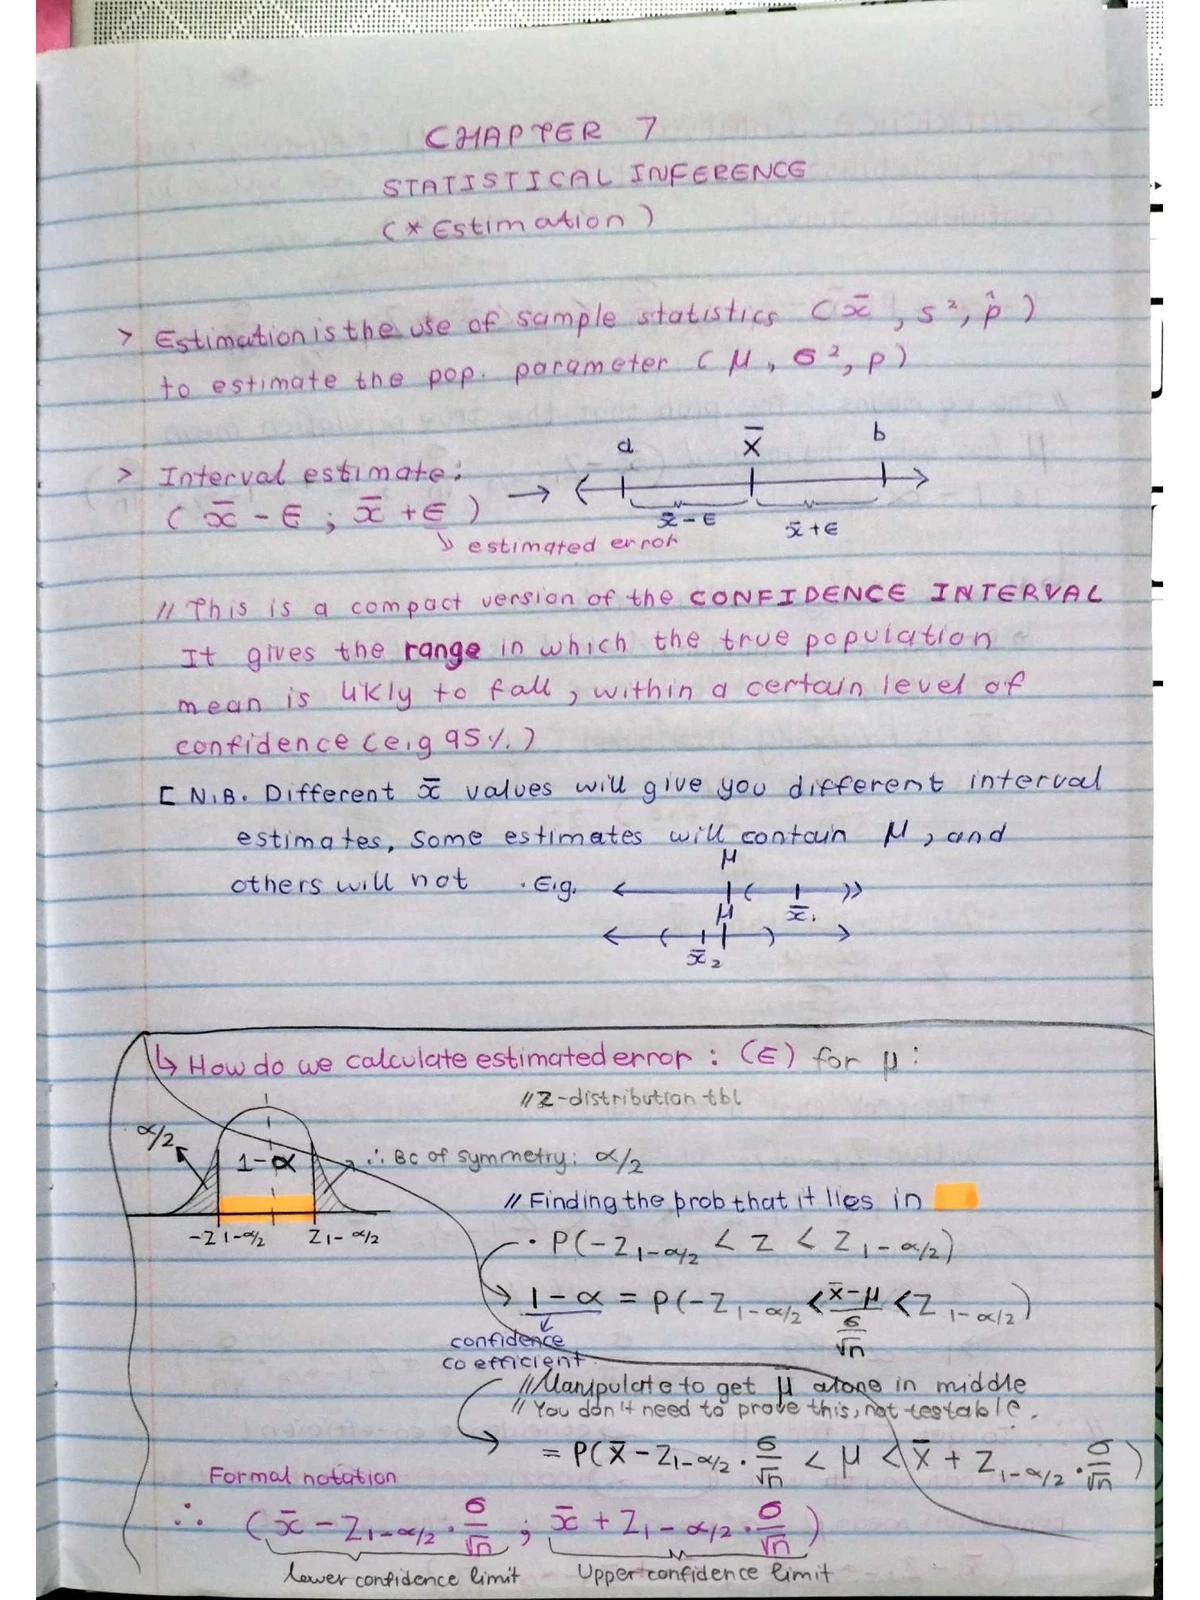 CHAPTER 7
STATISTICAL INFERENCE
(* Estimation)
> Estimation is the use of sample statistics (x̄, s², p̂)
to estimate the pop. parameter (μ, σ², p)
> Interval estimate:
(x̄ - E ; x̄ + E) →
a x̄ b
x̄ - E x̄ + E
↳ estimated error
// This is a compact version of the CONFIDENCE INTERVAL
It gives the range in which the true population
mean is likly to fall, within a certain level of
confidence (e.g 95%.)
[ N.B. Different x̄ values will give you different interval
estimates, some estimates will contain μ, and
others will not . E.g.
μ
x̄₁
μ
x̄₂
↳ How do we calculate estimated error : (E) for μ :
// Z-distribution tbl
α/2 1-α ∴ Bc of symmetry: α/2
-Z1-α/2 Z1-α/2
// Finding the prob that it lies in
• P(-Z1-α/2 < Z < Z1-α/2)
→ 1-α = P(-Z1-α/2 < (x̄-μ)/(σ/√n) < Z1-α/2)
confidence
coefficient
// Manipulate to get μ alone in middle
// You don't need to prove this, not testable.
= P(x̄ - Z1-α/2 · σ/√n < μ < x̄ + Z1-α/2 · σ/√n)
Formal notation
∴ (x̄ - Z1-α/2 · σ/√n ; x̄ + Z1-α/2 · σ/√n)
lower confidence limit Upper confidence limit